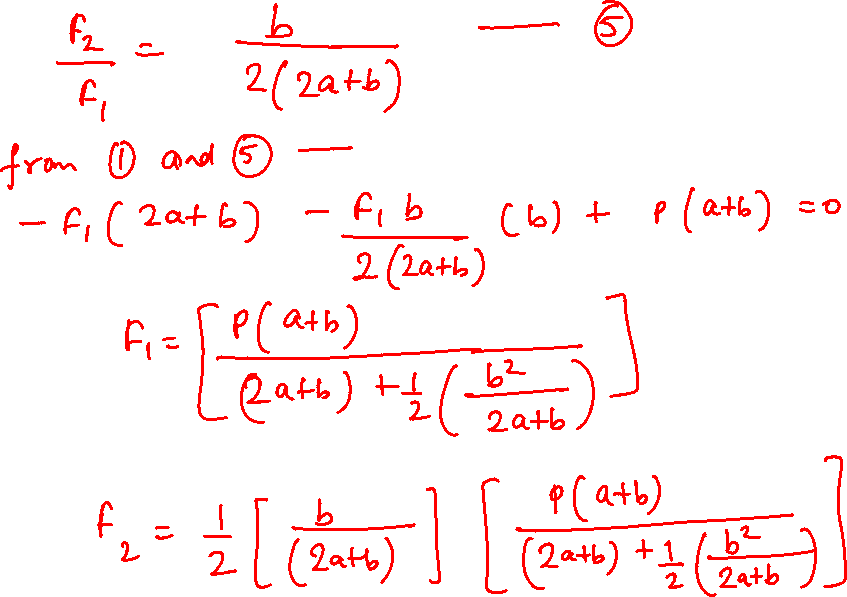 F₂/F₁ = b/(2(2a+b)) — ⑤
from ① and ⑤ —
- F₁(2a+b) - (F₁ b)/(2(2a+b)) (b) + P(a+b) = 0
F₁ = [P(a+b)/((2a+b) + 1/2 (b²/(2a+b)))]
F₂ = 1/2 [b/(2a+b)] [P(a+b)/((2a+b) + 1/2 (b²/(2a+b)))]